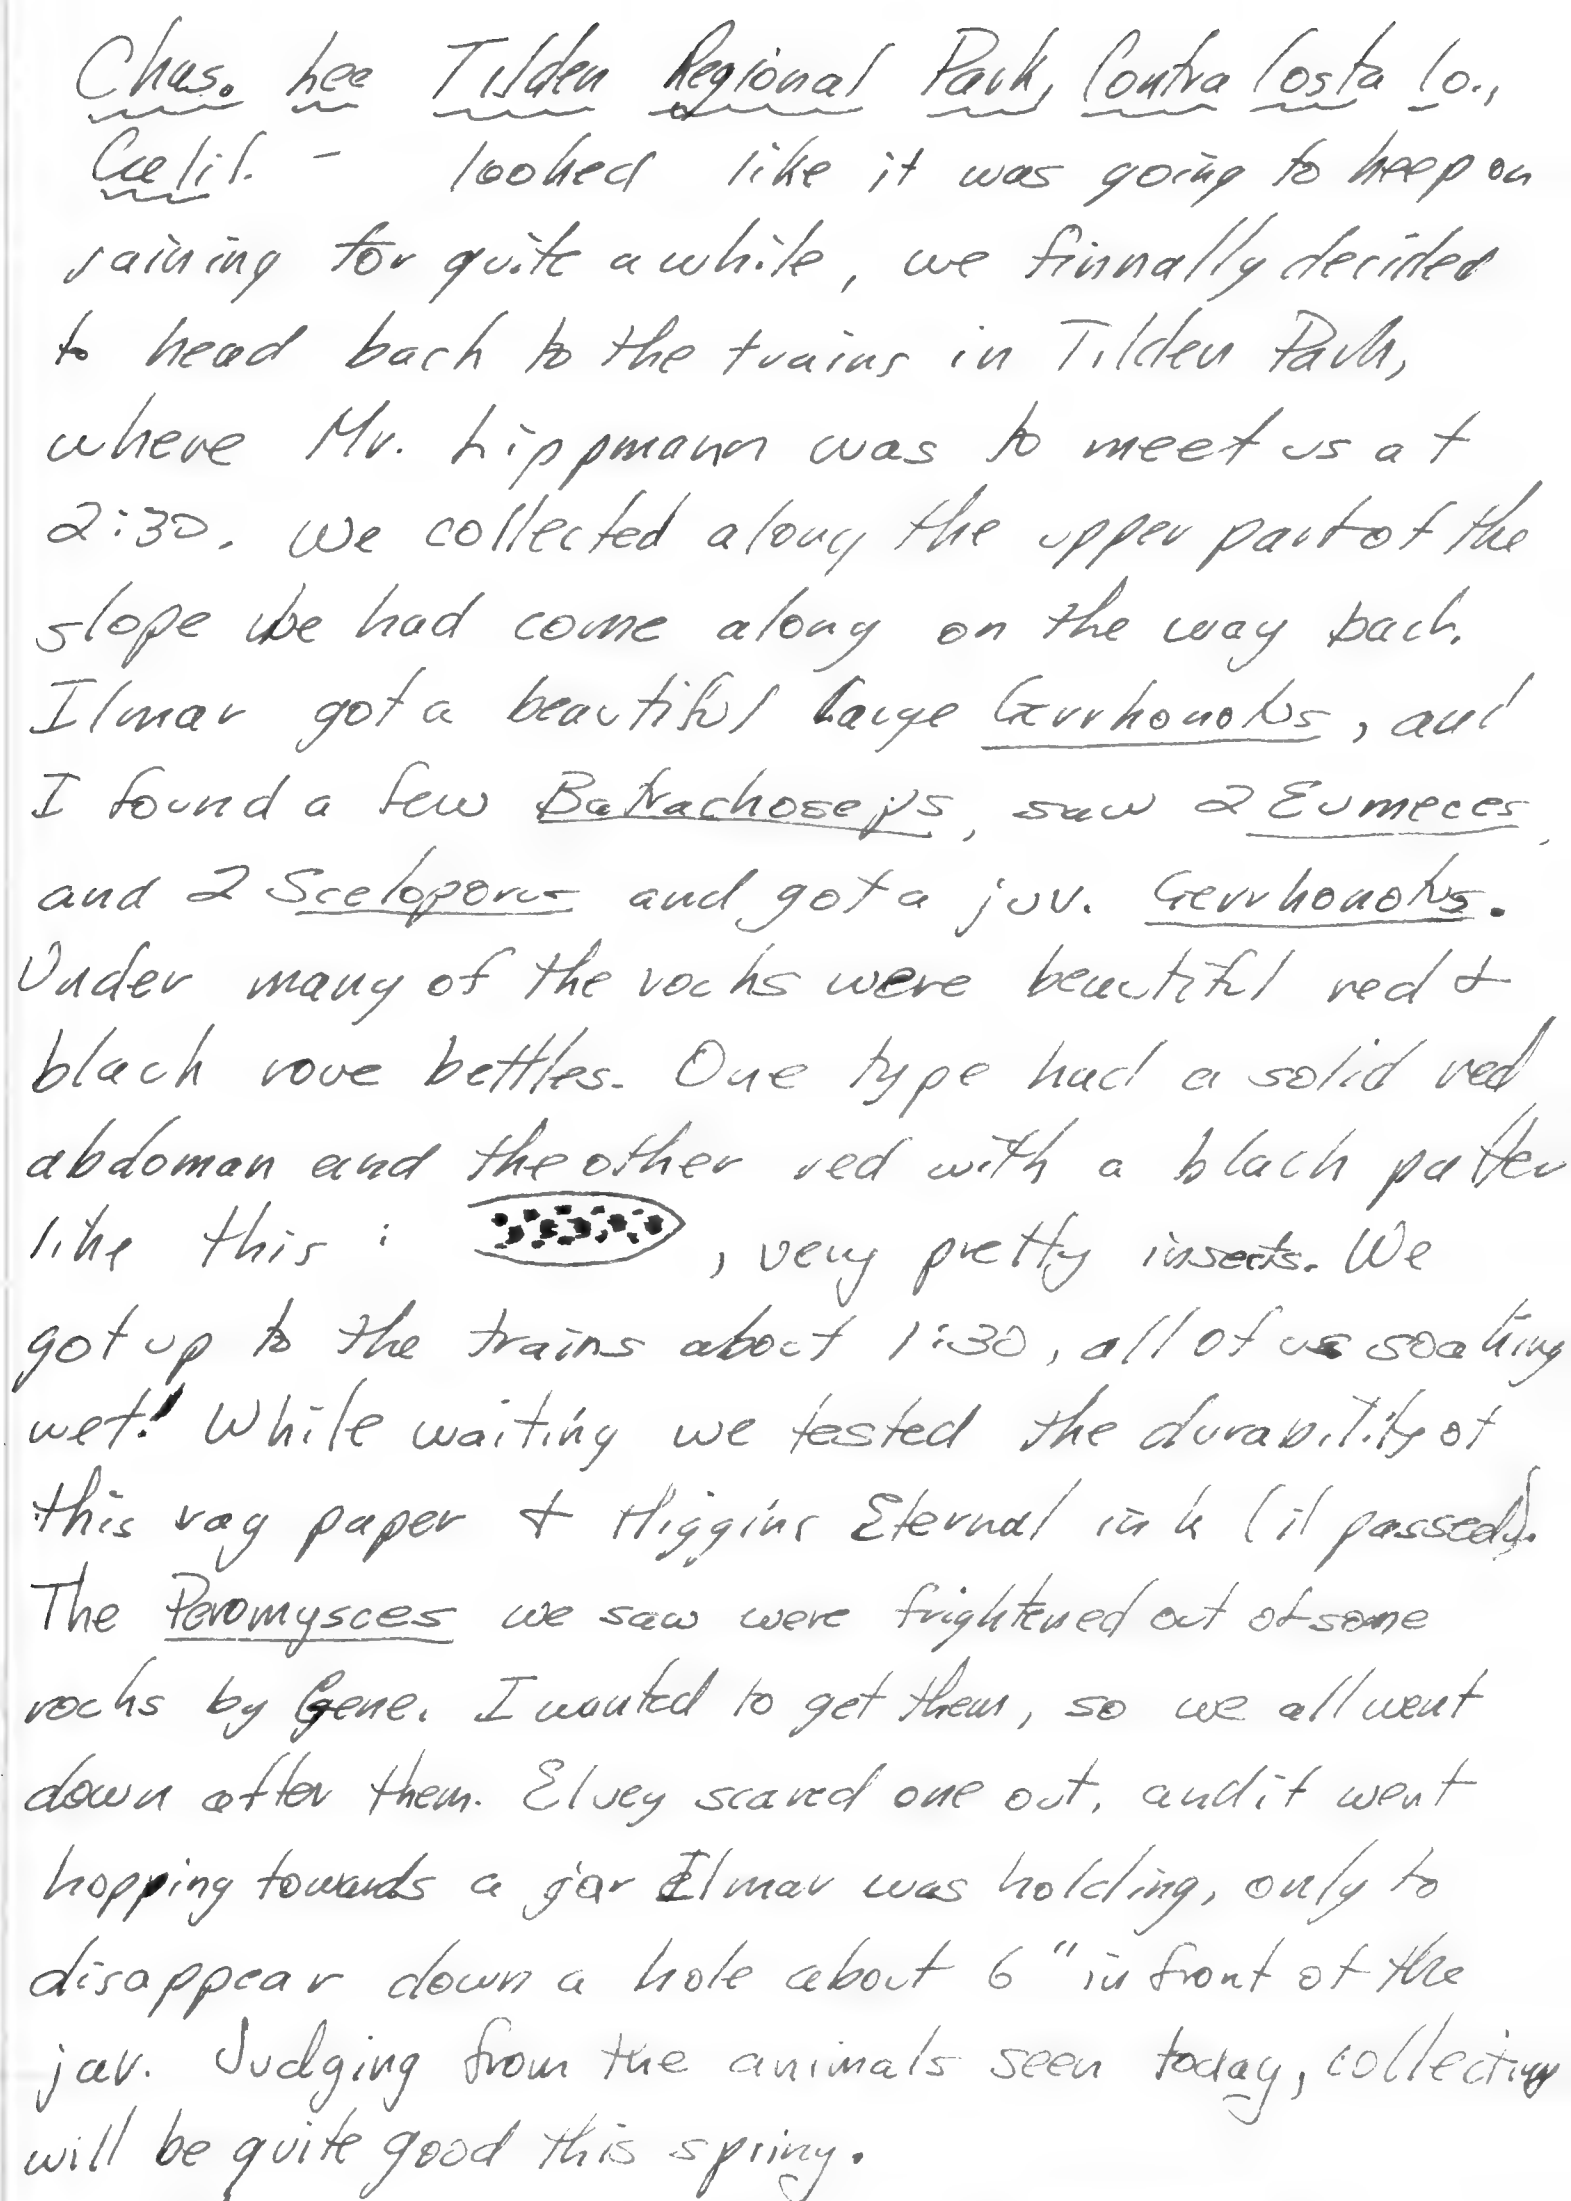 Chas. Lee Tilden Regional Park, Contra Costa Co.,
Calif. - looked like it was going to keep on
raining for quite awhile, we finnally decided
to head back to the trains in Tilden Park,
where Mr. Lippmann was to meet us at
2:30. We collected along the upper part of the
slope we had come along on the way back.
Ilmar got a beautiful large Gerrhonotus, and
I found a few Batrachoseps, saw 2 Eumeces,
and 2 Sceloporus and got a juv. Gerrhonotus.
Under many of the rocks were beautiful red &
black rove bettles. One type had a solid red
abdoman and the other red with a black patter
like this : , very pretty insects. We
got up to the trains about 1:30, all of us soaking
wet! While waiting we tested the durability of
this rag paper & Higgins Eternal ink (it passed).
The Peromysces we saw were frightened out of some
rocks by Gene. I wanted to get them, so we all went
down after them. Elvey scared one out, and it went
hopping towards a jar Ilmar was holding, only to
disappear down a hole about 6" in front of the
jar. Judging from the animals seen today, collecting
will be quite good this spring.